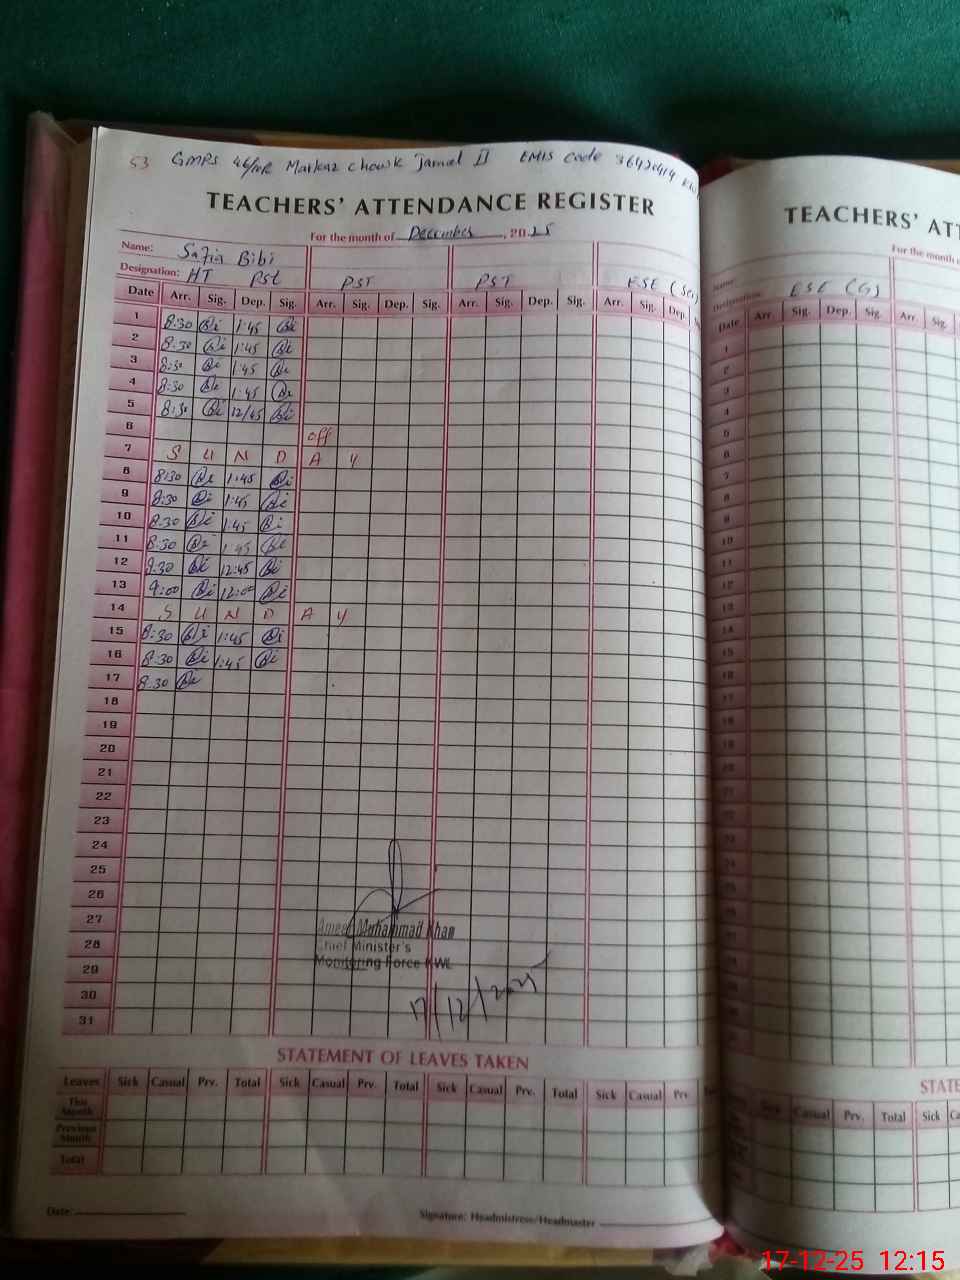 53 GMPS 46/MR Markaz Chowk Jamal II EMIS Code 36420419
TEACHERS' ATTENDANCE REGISTER
For the month of December, 2025
Name: Safia Bibi
Designation: HT PST PST PST ESE (Sci)
Date Arr. Sig. Dep. Sig. Arr. Sig. Dep. Sig. Arr. Sig. Dep. Sig. Arr. Sig. Dep.
1 8:30 Bi 1:45 Bi
2 8:30 Bi 1:45 Bi
3 8:30 Bi 1:45 Bi
4 8:30 Bi 1:45 Bi
5 8:30 Bi 12/45 Bi
6 off
7 S U N D A Y
8 8:30 Bi 1:45 Bi
9 8:30 Bi 1:45 Bi
10 8:30 Bi 1:45 Bi
11 8:30 Bi 1:45 Bi
12 8:30 Bi 12:45 Bi
13 9:00 Bi 12:00 Bi
14 S U N D A Y
15 8:30 Bi 1:45 Bi
16 8:30 Bi 1:45 Bi
17 8:30 Bi
18
19
20
21
22
23
24
25
26
27
28
29
30
31
Muhammad Khan
Chief Minister's
Monitoring Force KWL
17/12/2025
STATEMENT OF LEAVES TAKEN
Leaves Sick Casual Prv. Total Sick Casual Prv. Total Sick Casual Prv. Total Sick Casual Prv.
This Month
Previous Month
Total
Date:
Signature: Headmistress/Headmaster
TEACHERS' ATT
For the month
Name:
Designation: ESE (G)
Date Arr Sig. Dep. Sig. Arr. Sig.
1
2
3
4
5
6
7
8
9
10
11
12
13
14
15
16
17
18
19
20
21
22
STATE
Sick Casual Prv. Total Sick Ca
17-12-25 12:15